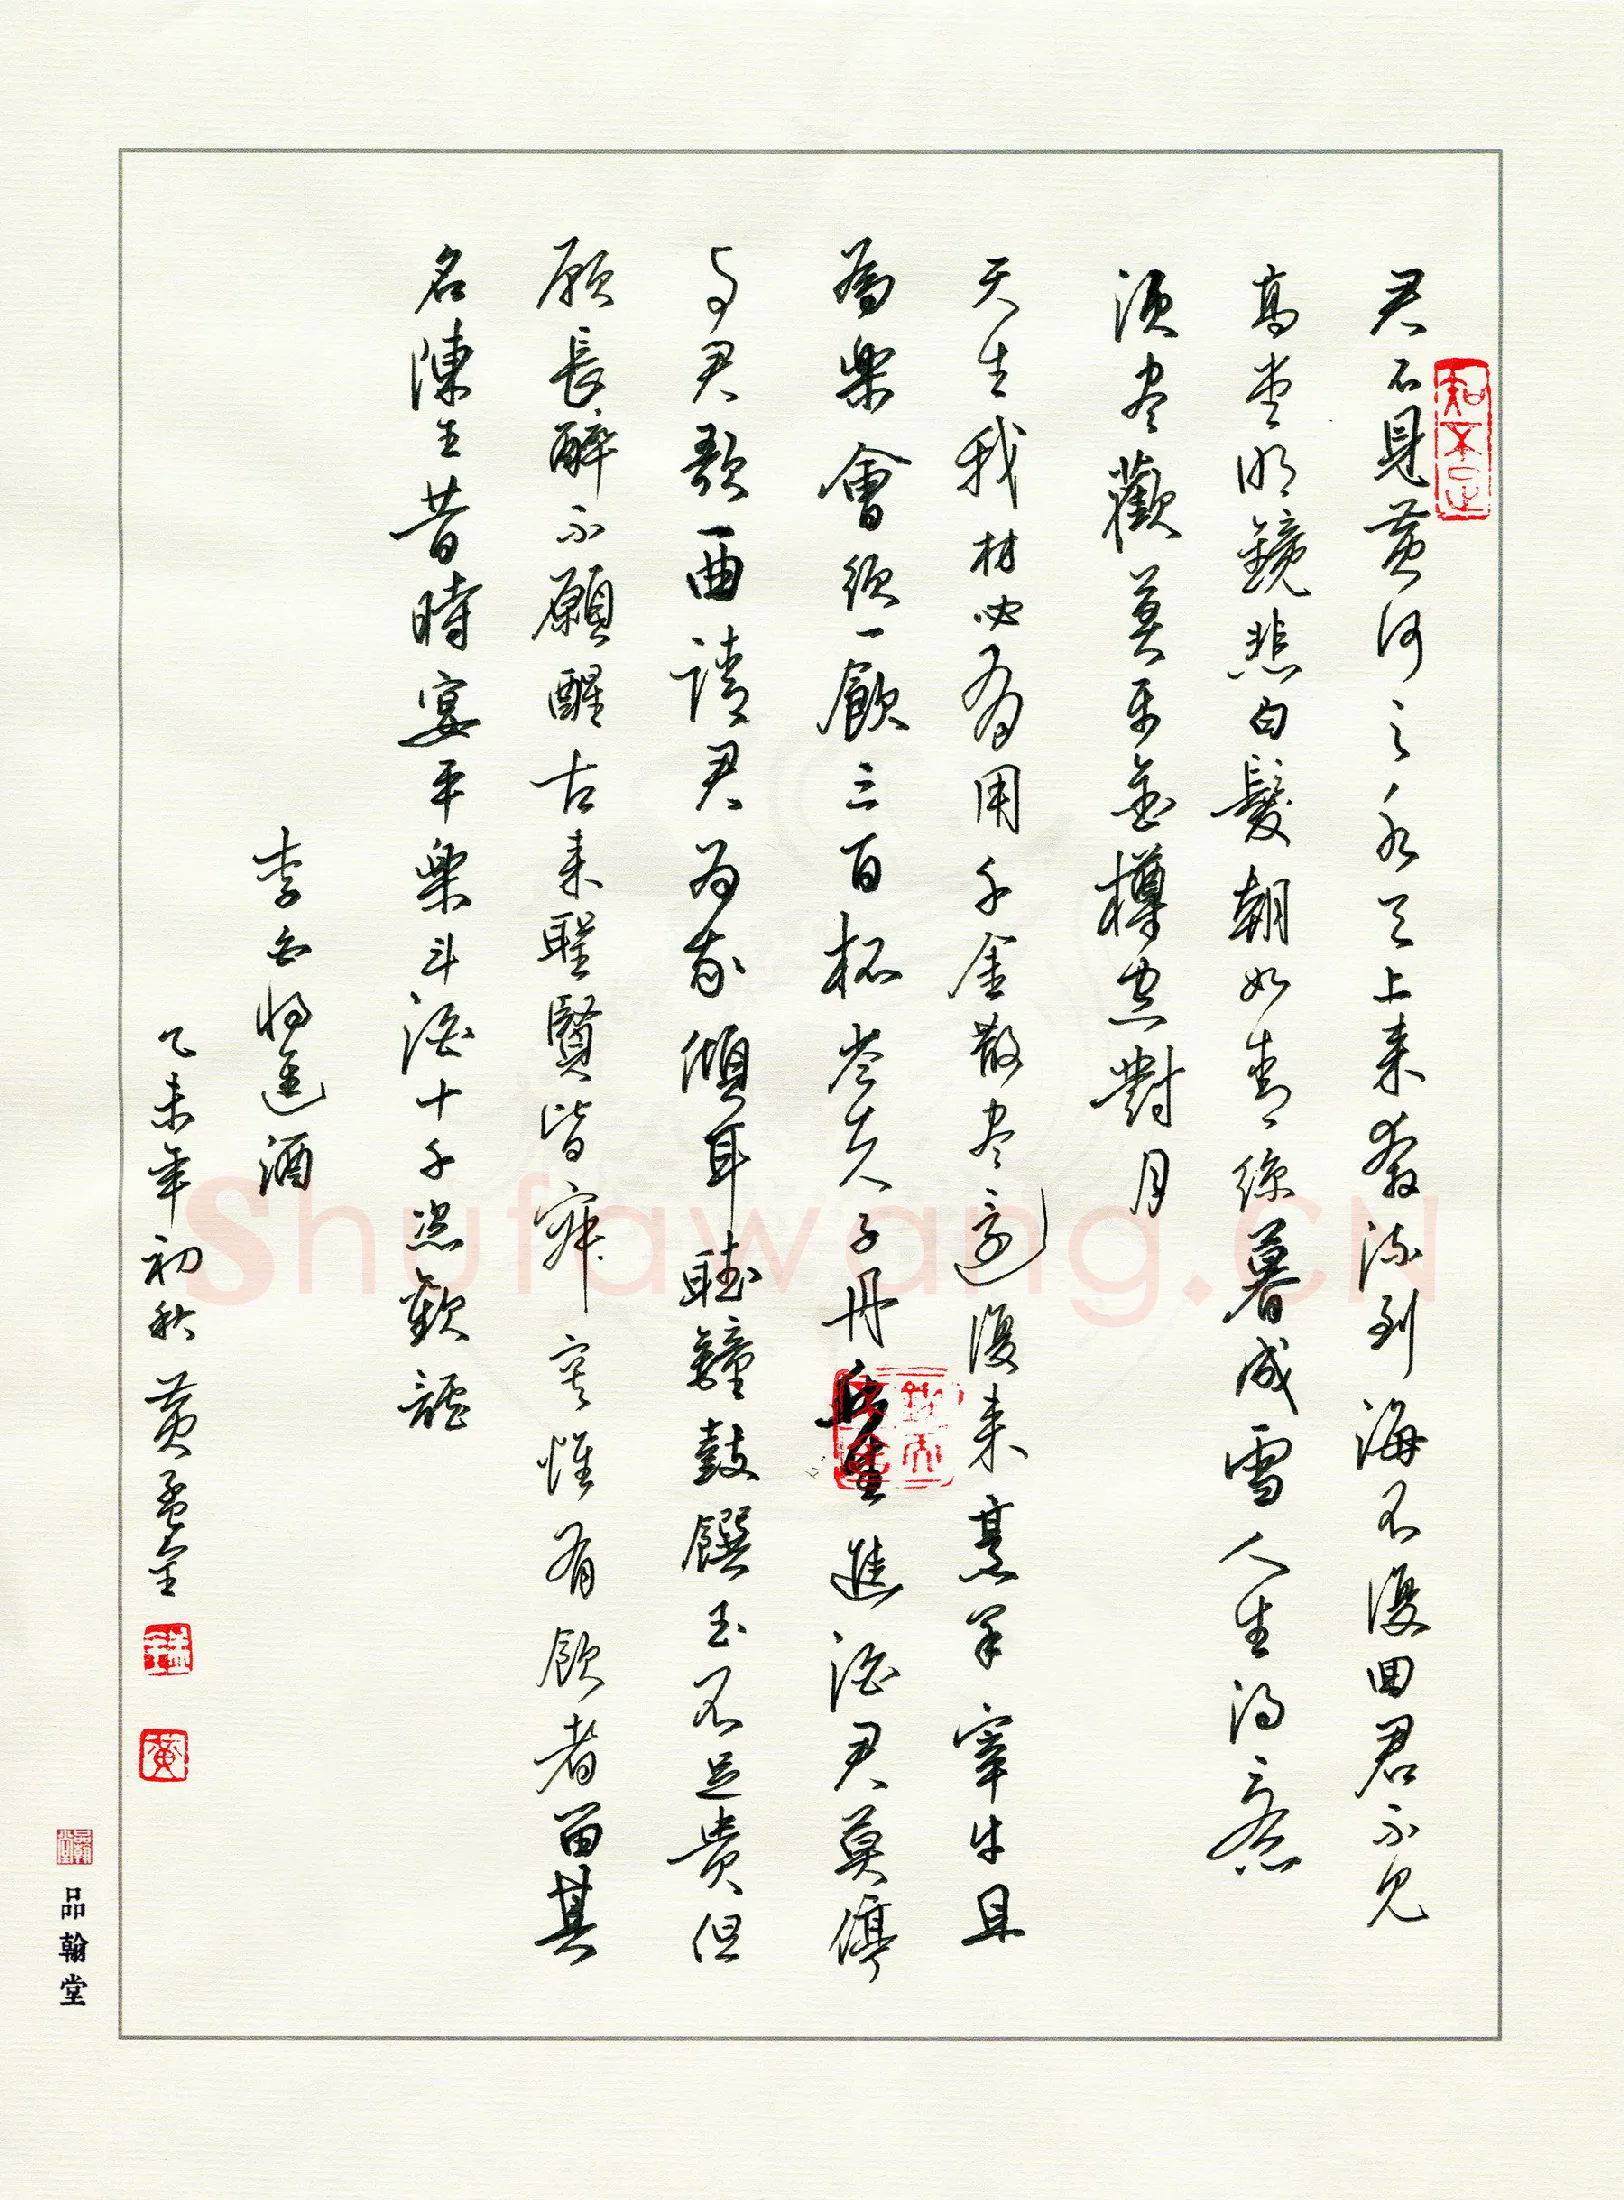 知不足
君不見黄河之水天上来奔流到海不復回君不見
高堂明鏡悲白髮朝如青絲暮成雪人生得意
須尽歡莫使金樽空對月
天生我材必有用千金散尽還復来烹羊宰牛且
為樂會須一飲三百杯岑夫子丹丘生進酒君莫停
与君歌一曲請君为我傾耳聴鐘鼓饌玉不足貴但
願長醉不願醒古来聖賢皆寂寞惟有飲者留其
名陳王昔時宴平樂斗酒十千恣歡謔
李白将進酒
乙未年初秋 黄孟
黄
品翰堂
Shufawang.CN